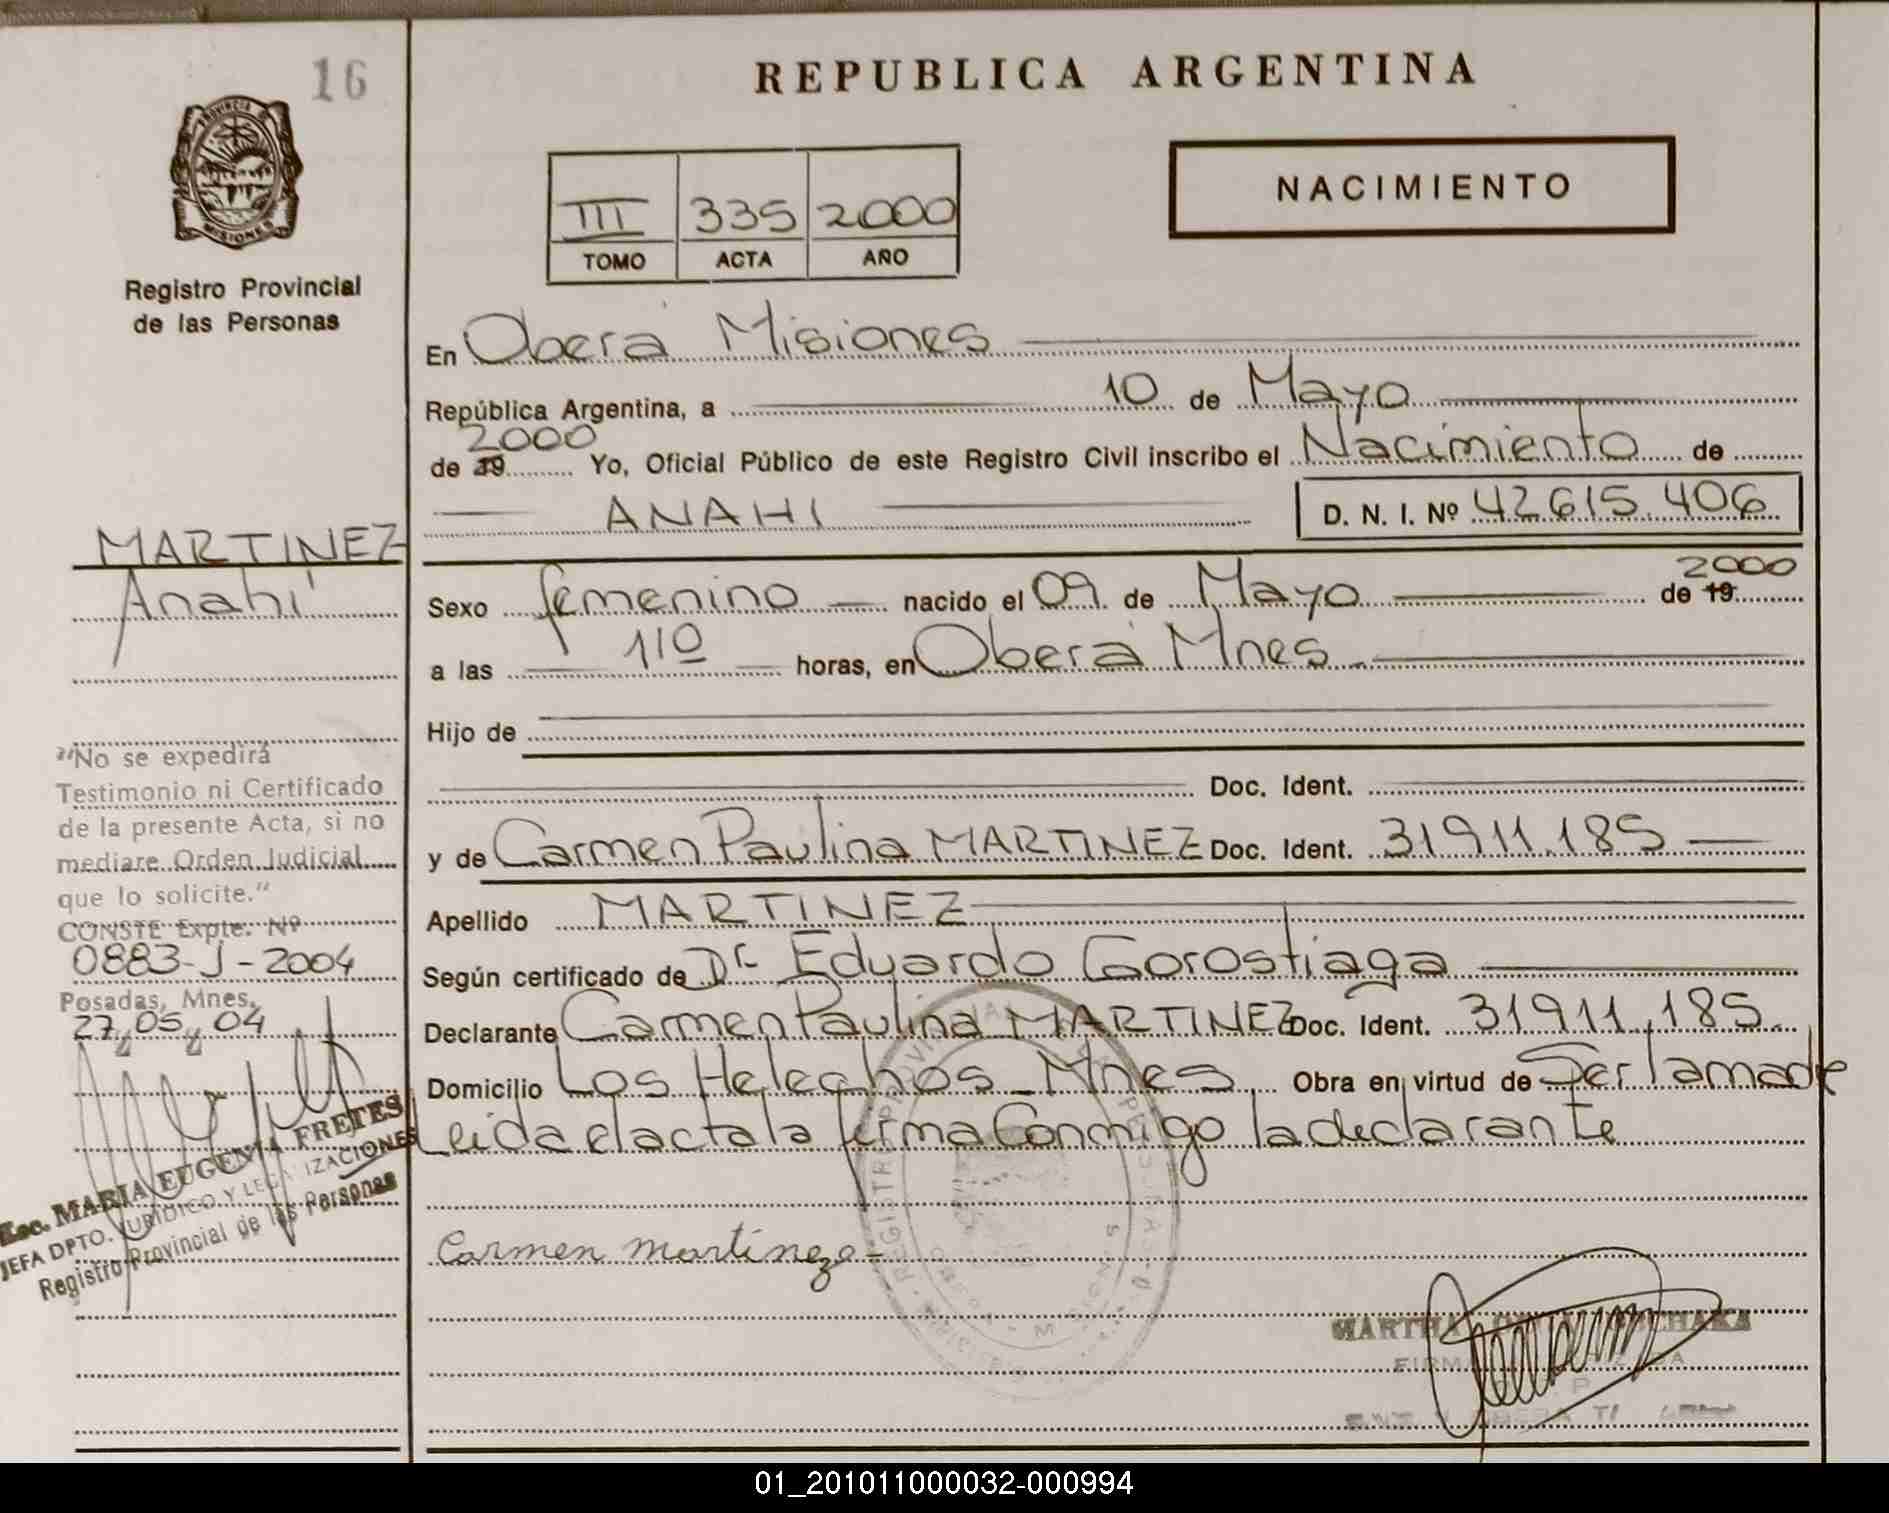 16
REPUBLICA ARGENTINA
PROVINCIA
MISIONES
Registro Provincial
de las Personas
III 335 2000
TOMO ACTA AÑO
NACIMIENTO
En Oberá Misiones
República Argentina, a 10 de Mayo
2000
de 19 Yo, Oficial Público de este Registro Civil inscribo el Nacimiento de
ANAHI D. N. I. Nº 42.615.406
MARTINEZ
Anahí
2000
Sexo femenino nacido el 09 de Mayo de 19
a las 110 horas, en Oberá Mnes
Hijo de
Doc. Ident.
y de Carmen Paulina MARTINEZ Doc. Ident. 31911.185
Apellido MARTINEZ
Según certificado de Dr. Eduardo Gorostiaga
Declarante Carmen Paulina MARTINEZ Doc. Ident. 31911.185
Domicilio Los Helechos Mnes Obra en virtud de Ser la madre
Leida el acta la firma Conmigo la declarante
Carmen Martinez
"No se expedirá
Testimonio ni Certificado
de la presente Acta, si no
mediare Orden Judicial
que lo solicite."
CONSTE Expte. Nº
0883-J-2004
Posadas, Mnes,
27 05 04
Esc. MARIA EUGENIA FRETES
JEFA DPTO. JURIDICO Y LEGALIZACIONES
Registro Provincial de las Personas
MARTHA
01_201011000032-000994